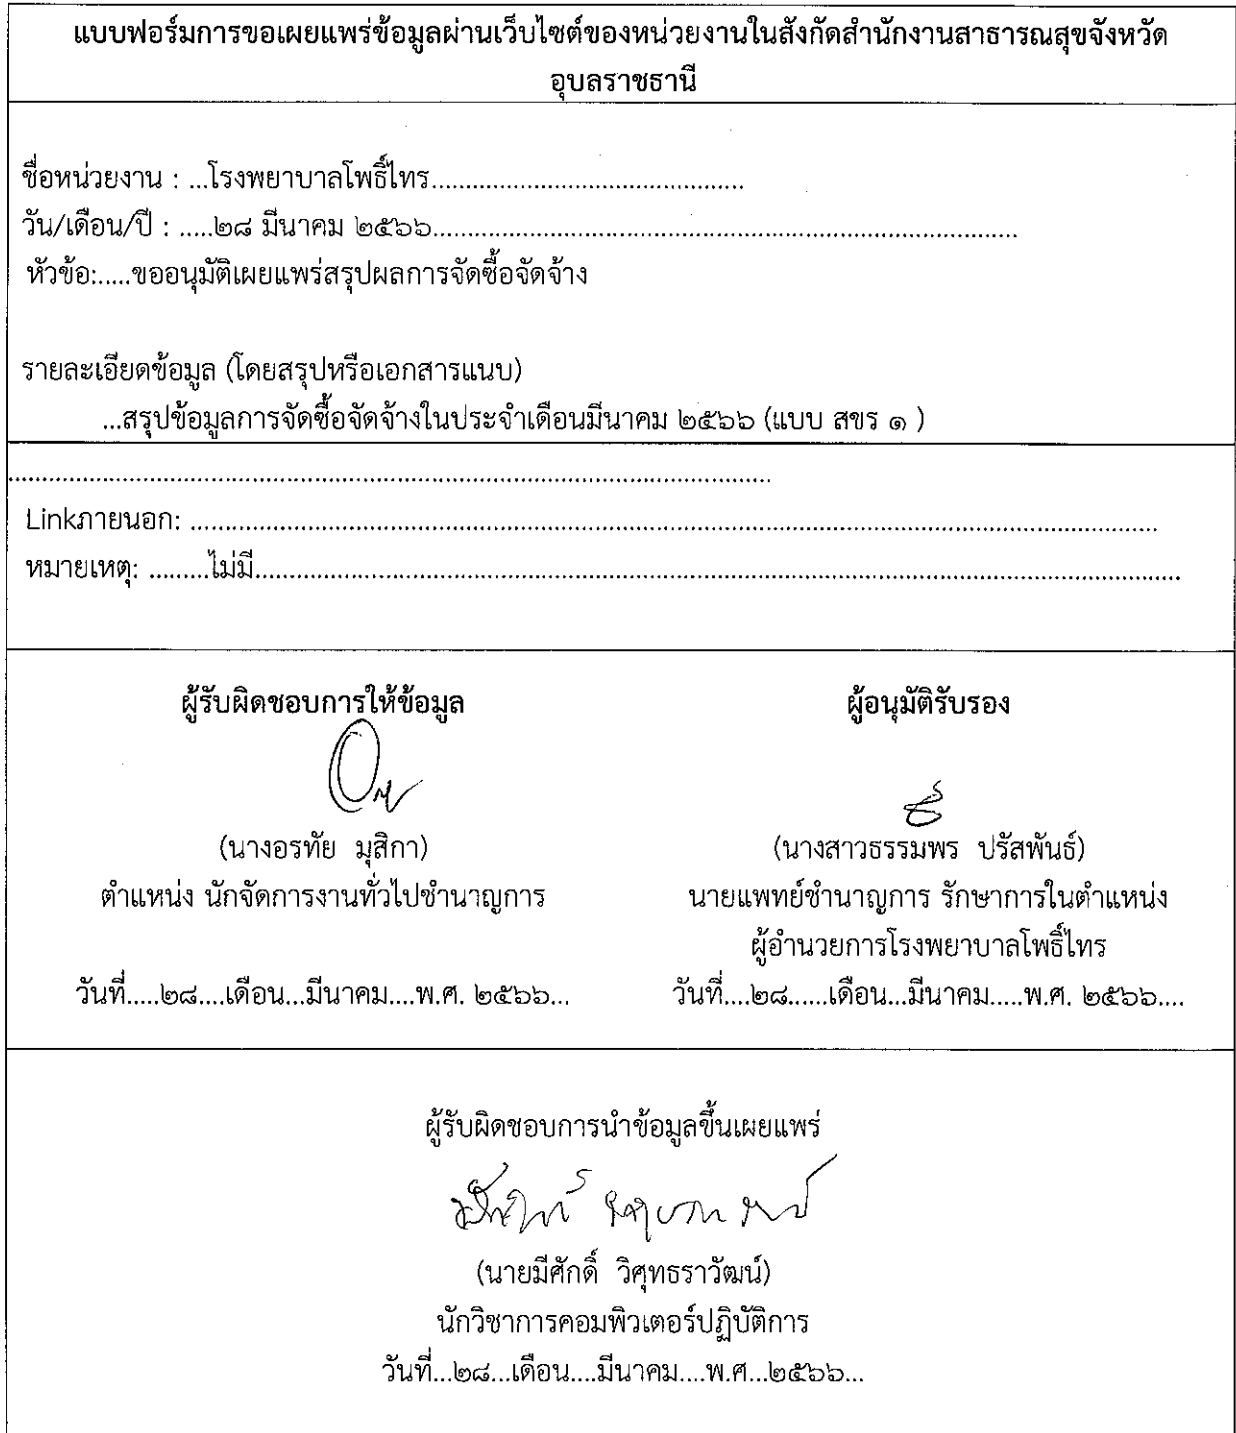 แบบฟอร์มการขอเผยแพร่ข้อมูลผ่านเว็บไซต์ของหน่วยงานในสังกัดสำนักงานสาธารณสุขจังหวัด
อุบลราชธานี
ชื่อหน่วยงาน : ...โรงพยาบาลโพธิ์ไทร..............................................
วัน/เดือน/ปี : .....๒๘ มีนาคม ๒๕๖๖.......................................................................................
หัวข้อ:.....ขออนุมัติเผยแพร่สรุปผลการจัดซื้อจัดจ้าง
รายละเอียดข้อมูล (โดยสรุปหรือเอกสารแนบ)
...สรุปข้อมูลการจัดซื้อจัดจ้างในประจำเดือนมีนาคม ๒๕๖๖ (แบบ สขร ๑ )
..................................................................................................................
Linkภายนอก: .................................................................................................................................................
หมายเหตุ: .........ไม่มี...........................................................................................................................................
ผู้รับผิดชอบการให้ข้อมูล ผู้อนุมัติรับรอง
(นางอรทัย มุสิกา) (นางสาวธรรมพร ปรัสพันธ์)
ตำแหน่ง นักจัดการงานทั่วไปชำนาญการ นายแพทย์ชำนาญการ รักษาการในตำแหน่ง
ผู้อำนวยการโรงพยาบาลโพธิ์ไทร
วันที่.....๒๘....เดือน...มีนาคม....พ.ศ. ๒๕๖๖... วันที่....๒๘......เดือน...มีนาคม.....พ.ศ. ๒๕๖๖....
ผู้รับผิดชอบการนำข้อมูลขึ้นเผยแพร่
(นายมีศักดิ์ วิศุทธราวัฒน์)
นักวิชาการคอมพิวเตอร์ปฏิบัติการ
วันที่...๒๘...เดือน....มีนาคม....พ.ศ...๒๕๖๖...